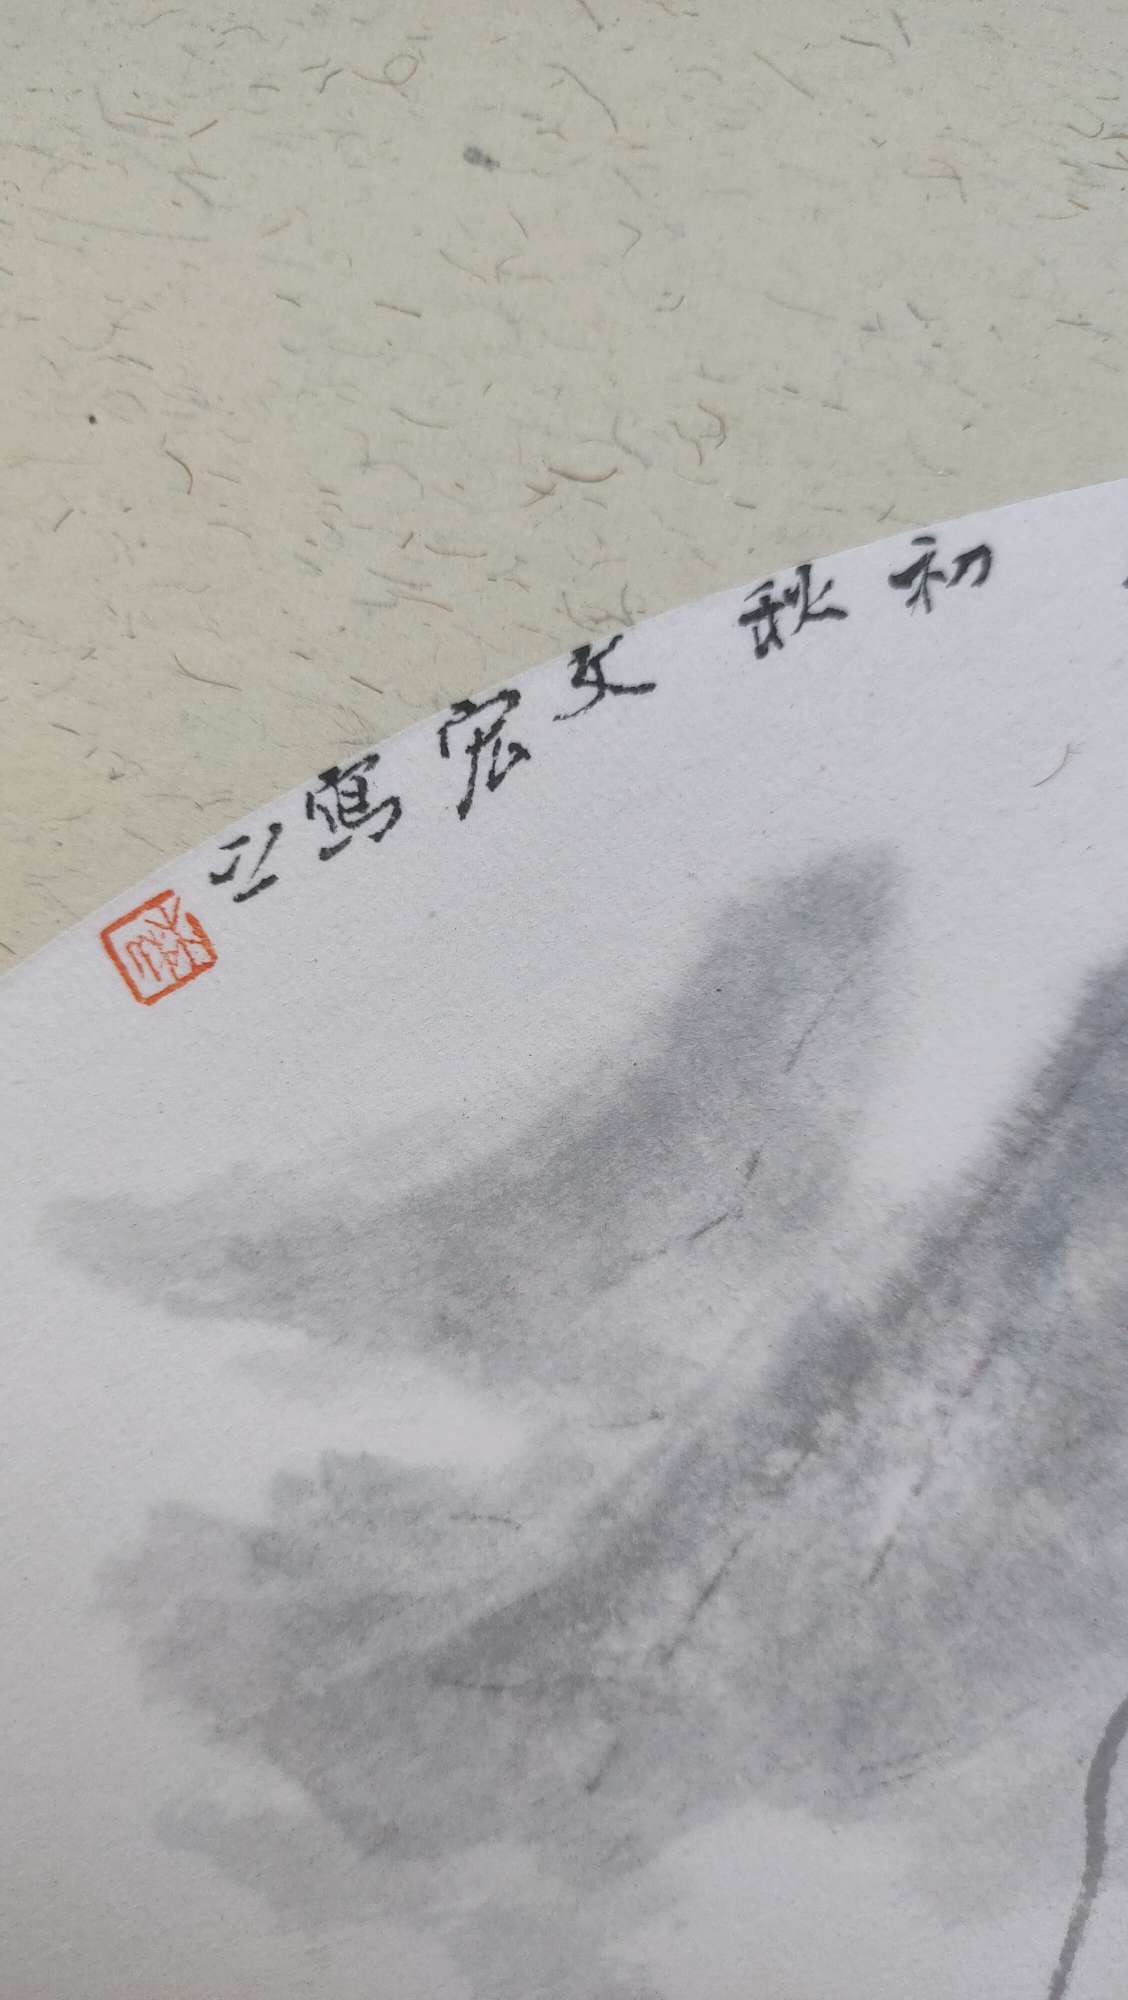 初秋文宏寫之